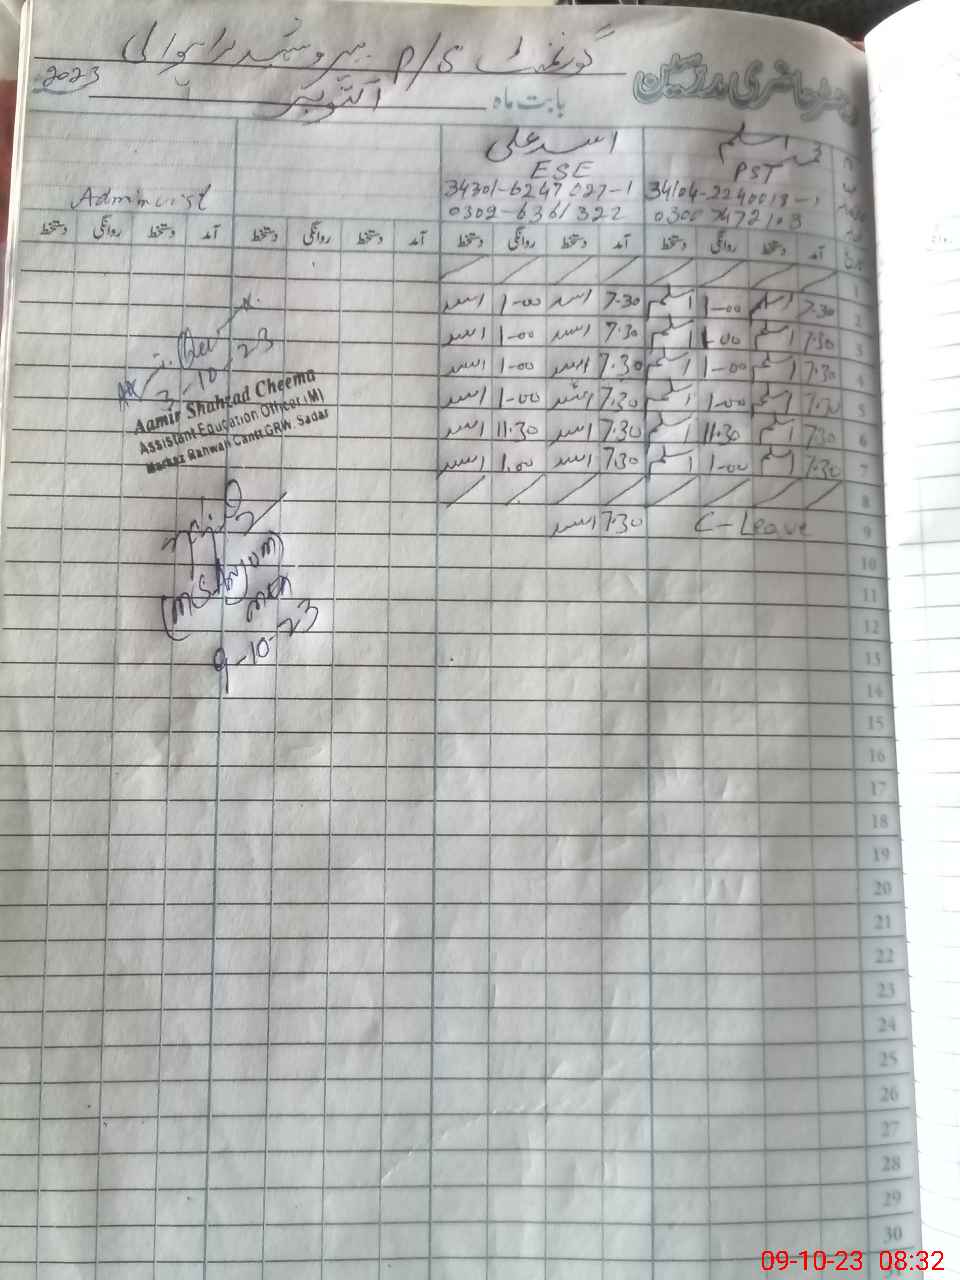 رجسٹر حاضری مدرسین
گورنمنٹ P/S
بابت ماہ اکتوبر 2023
محمد اسلم اسد علی
PST ESE
34301-6247027-1
0309-6361322
آمد دستخط روانگی دستخط آمد دستخط روانگی دستخط آمد دستخط روانگی دستخط آمد دستخط روانگی دستخط
1
2 7.30 اسلم 1-00 اسلم 7.30 اسد 1-00 اسد
3 7.30 اسلم 1-00 اسلم 7.30 اسد 1-00 اسد
4 7.30 اسلم 1-00 اسلم 7.30 اسد 1-00 اسد
5 7.30 اسلم 1-00 اسلم 7.30 اسد 1-00 اسد
6 7.30 اسلم 11.30 اسلم 7.30 اسد 11.30 اسد
7 7.30 اسلم 1-00 اسلم 7.30 اسد 1.00 اسد
8
9 C-Leave 7.30 اسد
10
11
12
13
14
15
16
17
18
19
20
21
22
23
24
25
26
27
28
29
30
3-10-23
Aamir Shahzad Cheema
Assistant Education Officer (M)
Markaz Rahwali Cantt GRW. Sadar
9-10-23
09-10-23 08:32